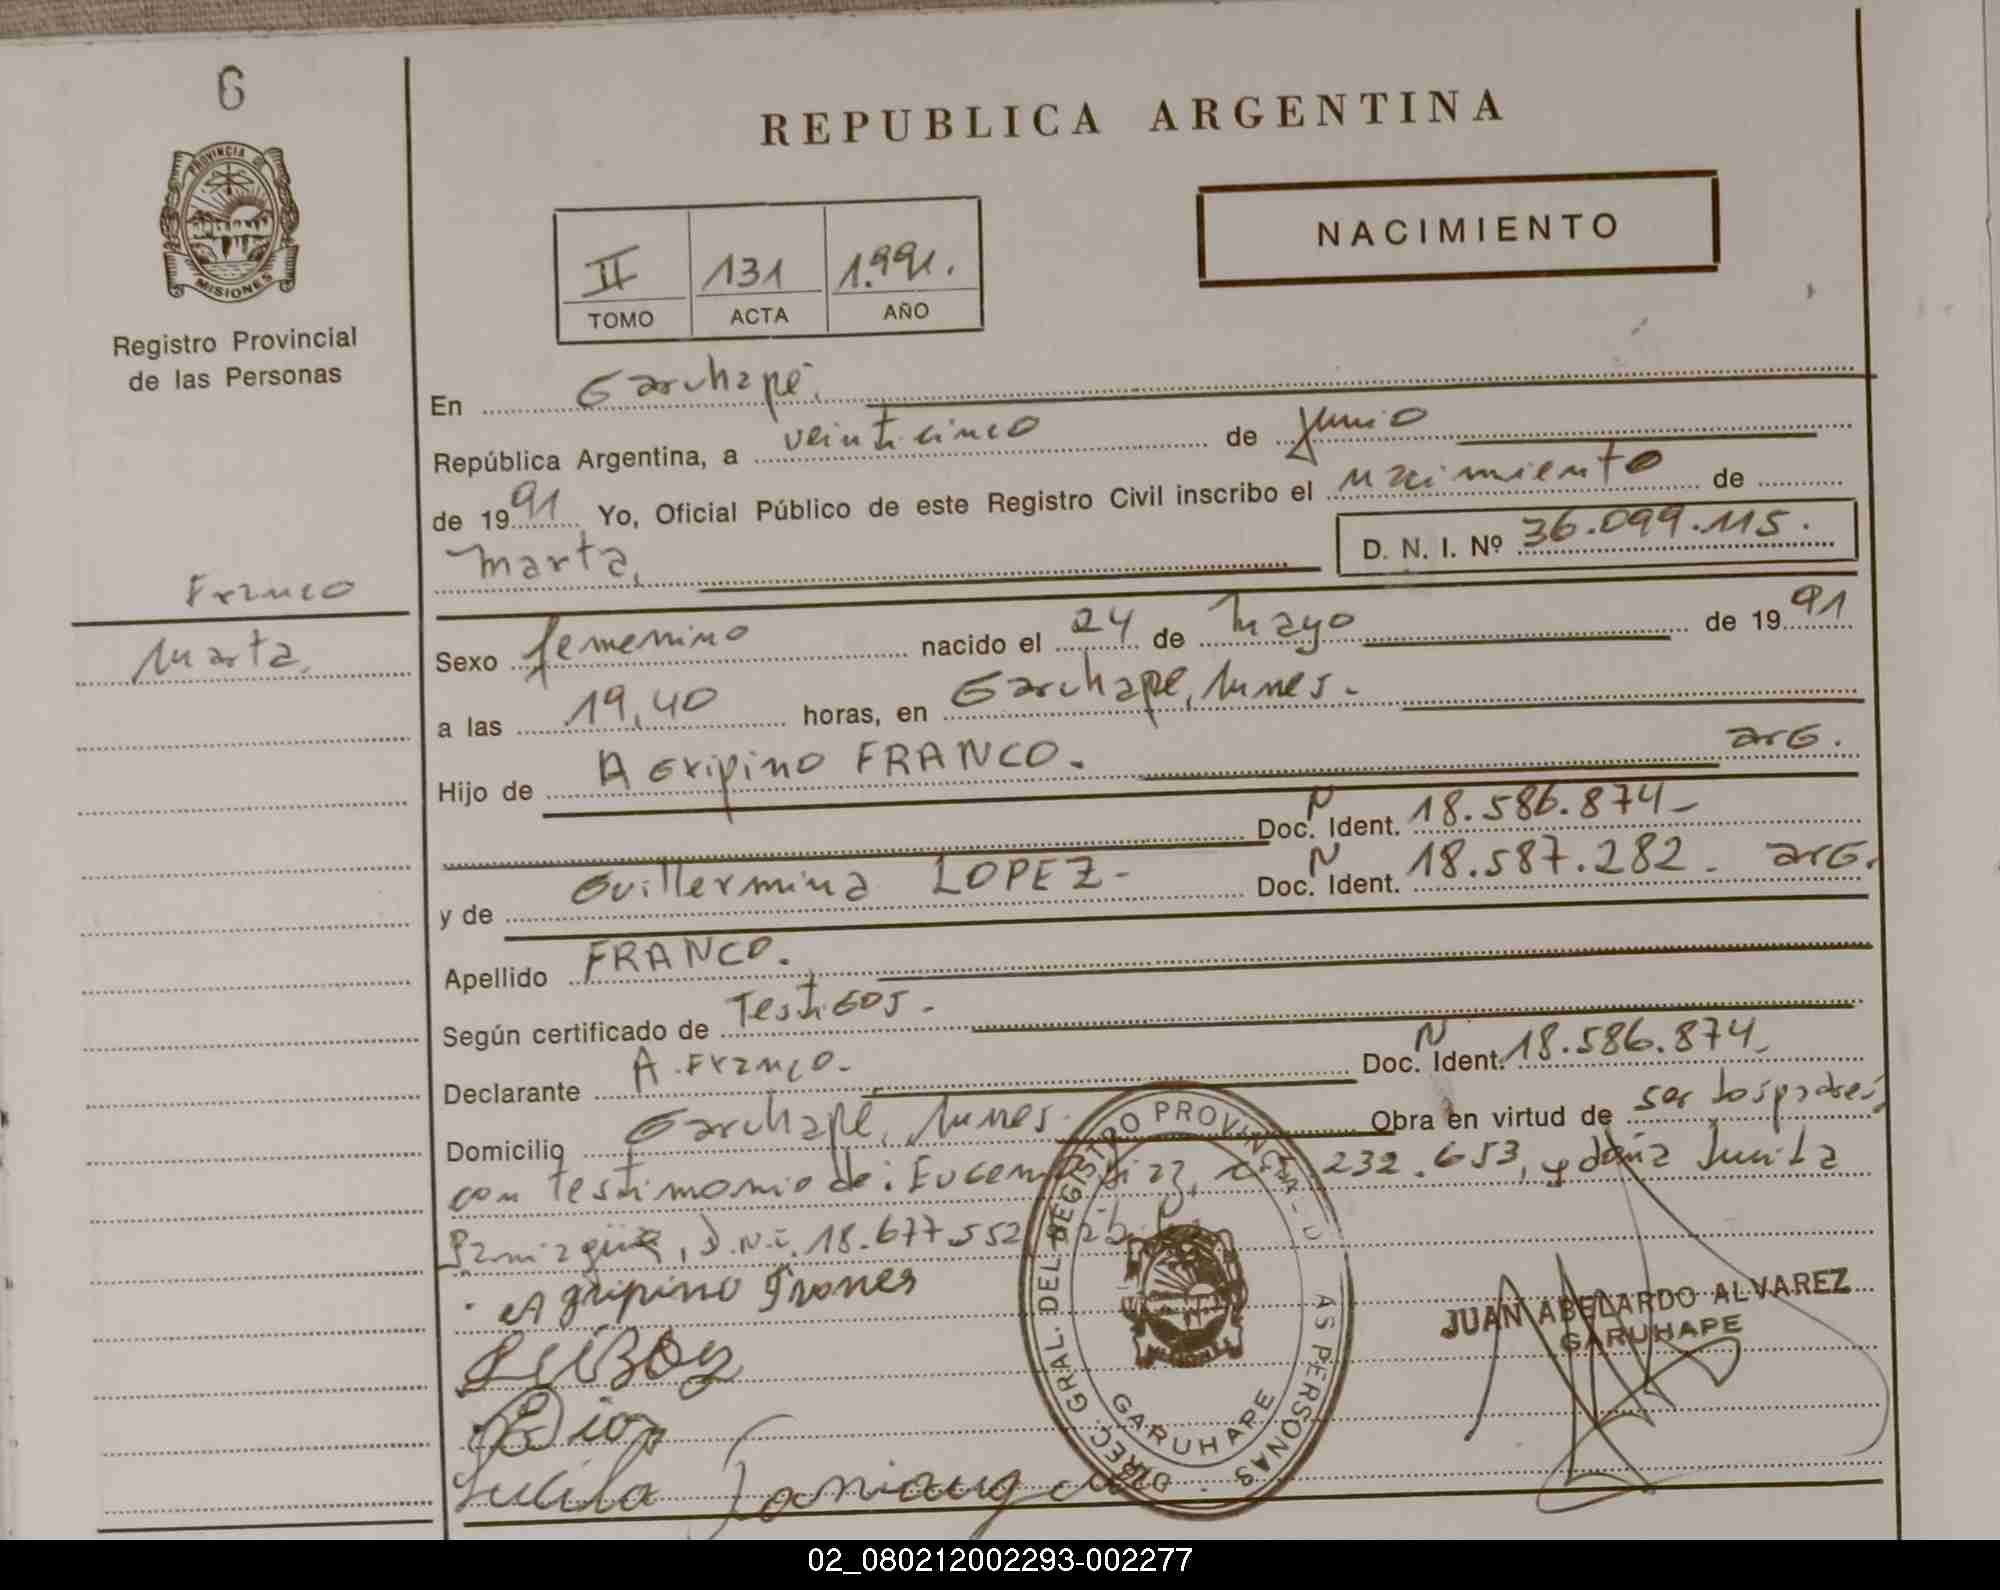 6
PROVINCIA DE
MISIONES
Registro Provincial
de las Personas
Franco
Marta.
REPUBLICA ARGENTINA
NACIMIENTO
II 131 1.991.
TOMO ACTA AÑO
En Garuhapé.
República Argentina, a veinticinco de Junio
de 1991 Yo, Oficial Público de este Registro Civil inscribo el nacimiento de
Marta, D. N. I. Nº 36.099.115.
Sexo femenino nacido el 24 de Mayo de 1991
a las 19,40 horas, en Garuhape,
Hijo de Agripino FRANCO. arg.
Doc. N Ident. 18.586.874-
y de Guillermina LOPEZ- Doc. N Ident. 18.587.282. arg.
Apellido FRANCO.
Según certificado de Testigos.
Declarante A. Franco. Doc. N Ident. 18.586.874
Domicilio Garuhape, Obra en virtud de ser los padres
con testimonio de: 232.653, y doña
D.N.I. 18.677.552
Agripino
DIREC. GRAL. DEL REGISTRO PROVINCIAL AS PERSONAS
GARUHAPE
JUAN ABELARDO ALVAREZ
GARUHAPE
02_080212002293-002277